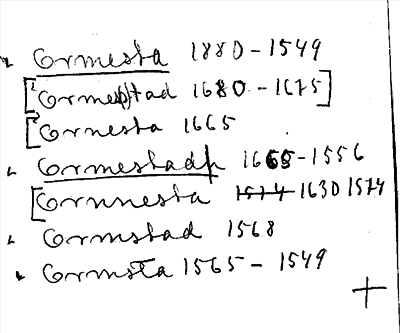 Ormesta 1880 - 1549
[Ormestad 1680 - 1675]
[Ornesta 1665
Ormestadh 1665 - 1556
[Ornnesta 1574 1630 1574
Ormstad 1568
Ormsta 1565 - 1549